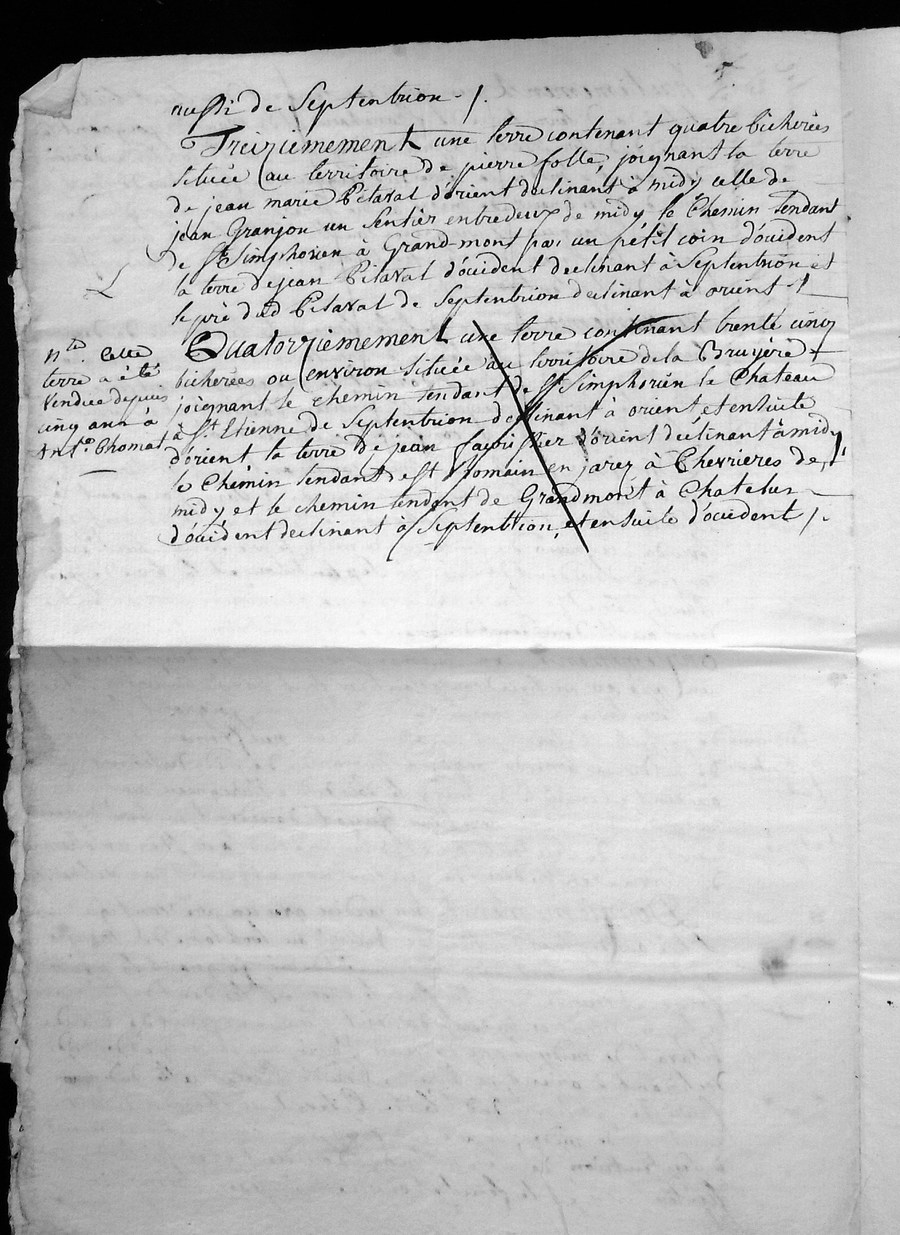 aussi de Septentrion ./.
Treizièmement une terre contenant quatre bicherées
située au territoire de pierre folle, joignant la terre
de jean marie Pétaval d'orient déclinant à midy celle de
jean Granjon un sentier entredeux de midy le Chemin tendant
de St Simphorien à Grand-mont par un pétit coin d'ocident
la terre de jean Pétaval d'ocident declinant à Septentrion et
le prè dud Pétaval de Septentrion declinant à orient ./.
Quatorzièmement une terre contenant trente cinq
bicherées ou environ située au territoire de la Bruyère
joignant le chemin tendant de St Simphorien le Chateau
à St Etienne de Septentrion declinant à orient, et ensuite
d'orient la terre de jean d'orient déclinant à midy
le Chemin tendant de st Romain en jarez à Chevrieres de
midy et le chemin tendant de Grandmont à Chatelus
d'ocident declinant à Septentrion, et ensuite d'ocident ./.
Nta. Cette
terre a été
vendue depuis
cinq ans à
Ant.ne Thomat